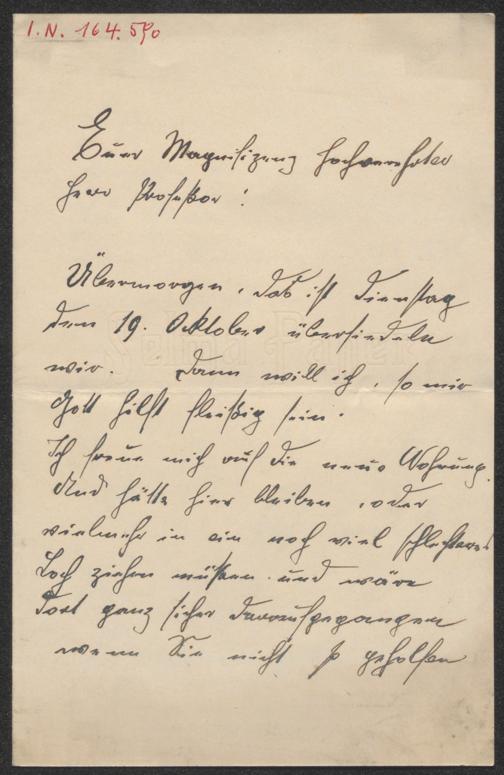 I.N. 164.590
Euer Magnifizenz hochverehrter
Herr Profeßor!
Übermorgen, das ist Dienstag
den 19. Oktober übersiedeln
wir. Dann will ich, so mir
Gott hilft fleißig sein.
Ich freue mich auf die neue Wohnung.
Und hätte hier bleiben, oder
vielmehr in ein noch viel schlechteres
Loch ziehen müßen und wäre
dort ganz sicher daraufgegangen
wenn Sie nicht so geholfen